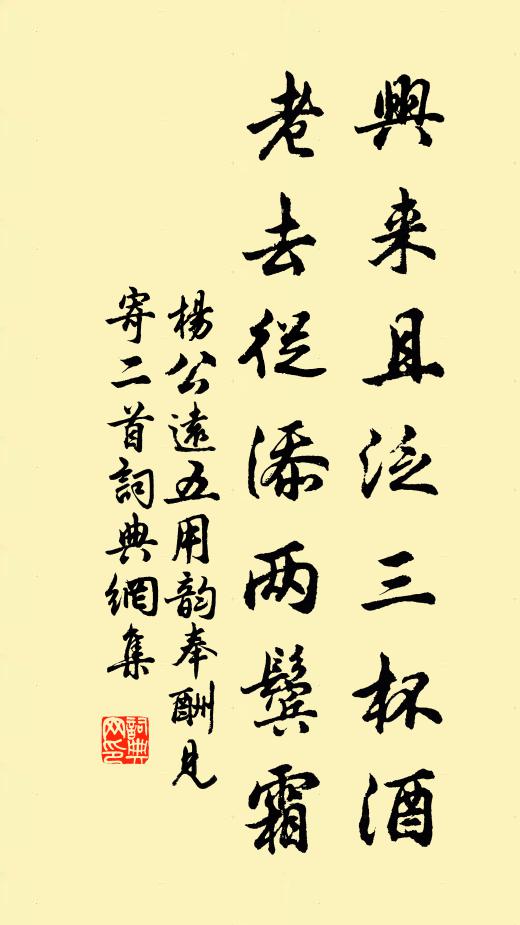 興来且泛三杯酒
老去從添两鬓霜
楊公遠五用韵奉酬見
寄二首詞典網集
詞典网印